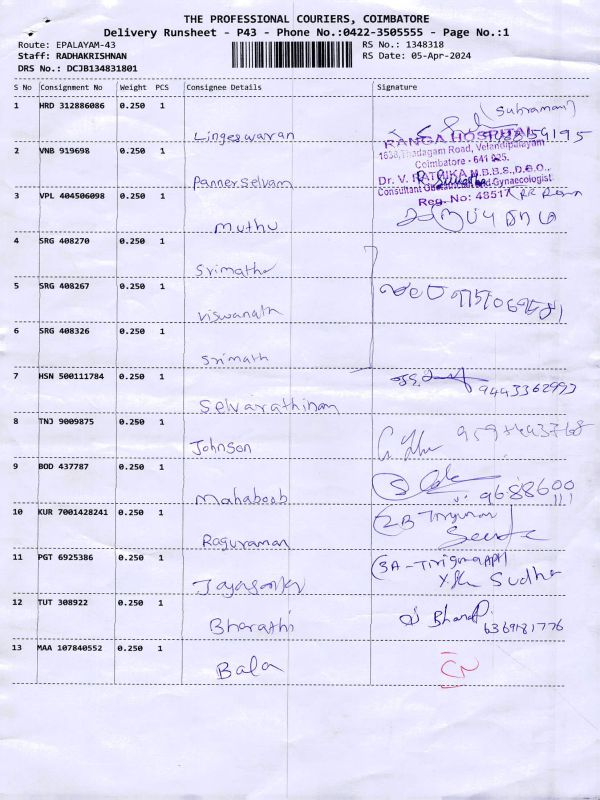 THE PROFESSIONAL COURIERS, COIMBATORE
Delivery Runsheet - P43 - Phone No.:0422-3505555 - Page No.:1
Route: EPALAYAM-43 RS No.: 1348318
Staff: RADHAKRISHNAN RS Date: 05-Apr-2024
DRS No.: DCJB134831801
S No Consignment No Weight PCS Consignee Details Signature
1 HRD 312886086 0.250 1
(Subramani)
Lingeswaran
RANGA HOSPITAL
1638, Thadagam Road, Velandipalayam
2 VNB 919698 0.250 1
Coimbatore - 641 025.
Pannerselvam
M.B.B.S.,D.G.O.,
Consultant Obstetrician and Gynaecologist
3 VPL 404506098 0.250 1
Reg. No: 48517
Muthu
4 SRG 408270 0.250 1
Srimathi
5 SRG 408267 0.250 1
Viswanath
6 SRG 408326 0.250 1
Srimath
7 HSN 500111784 0.250 1
9443362997
Selvarathinam
8 TNJ 9009875 0.250 1
Johnson
9 BOD 437787 0.250 1
9688600
111
Mahaboob
10 KUR 7001428241 0.250 1
2B
Raguraman
11 PGT 6925386 0.250 1
3A-
Sudha
12 TUT 308922 0.250 1
6369181776
Bharathi
13 MAA 107840552 0.250 1
Bala